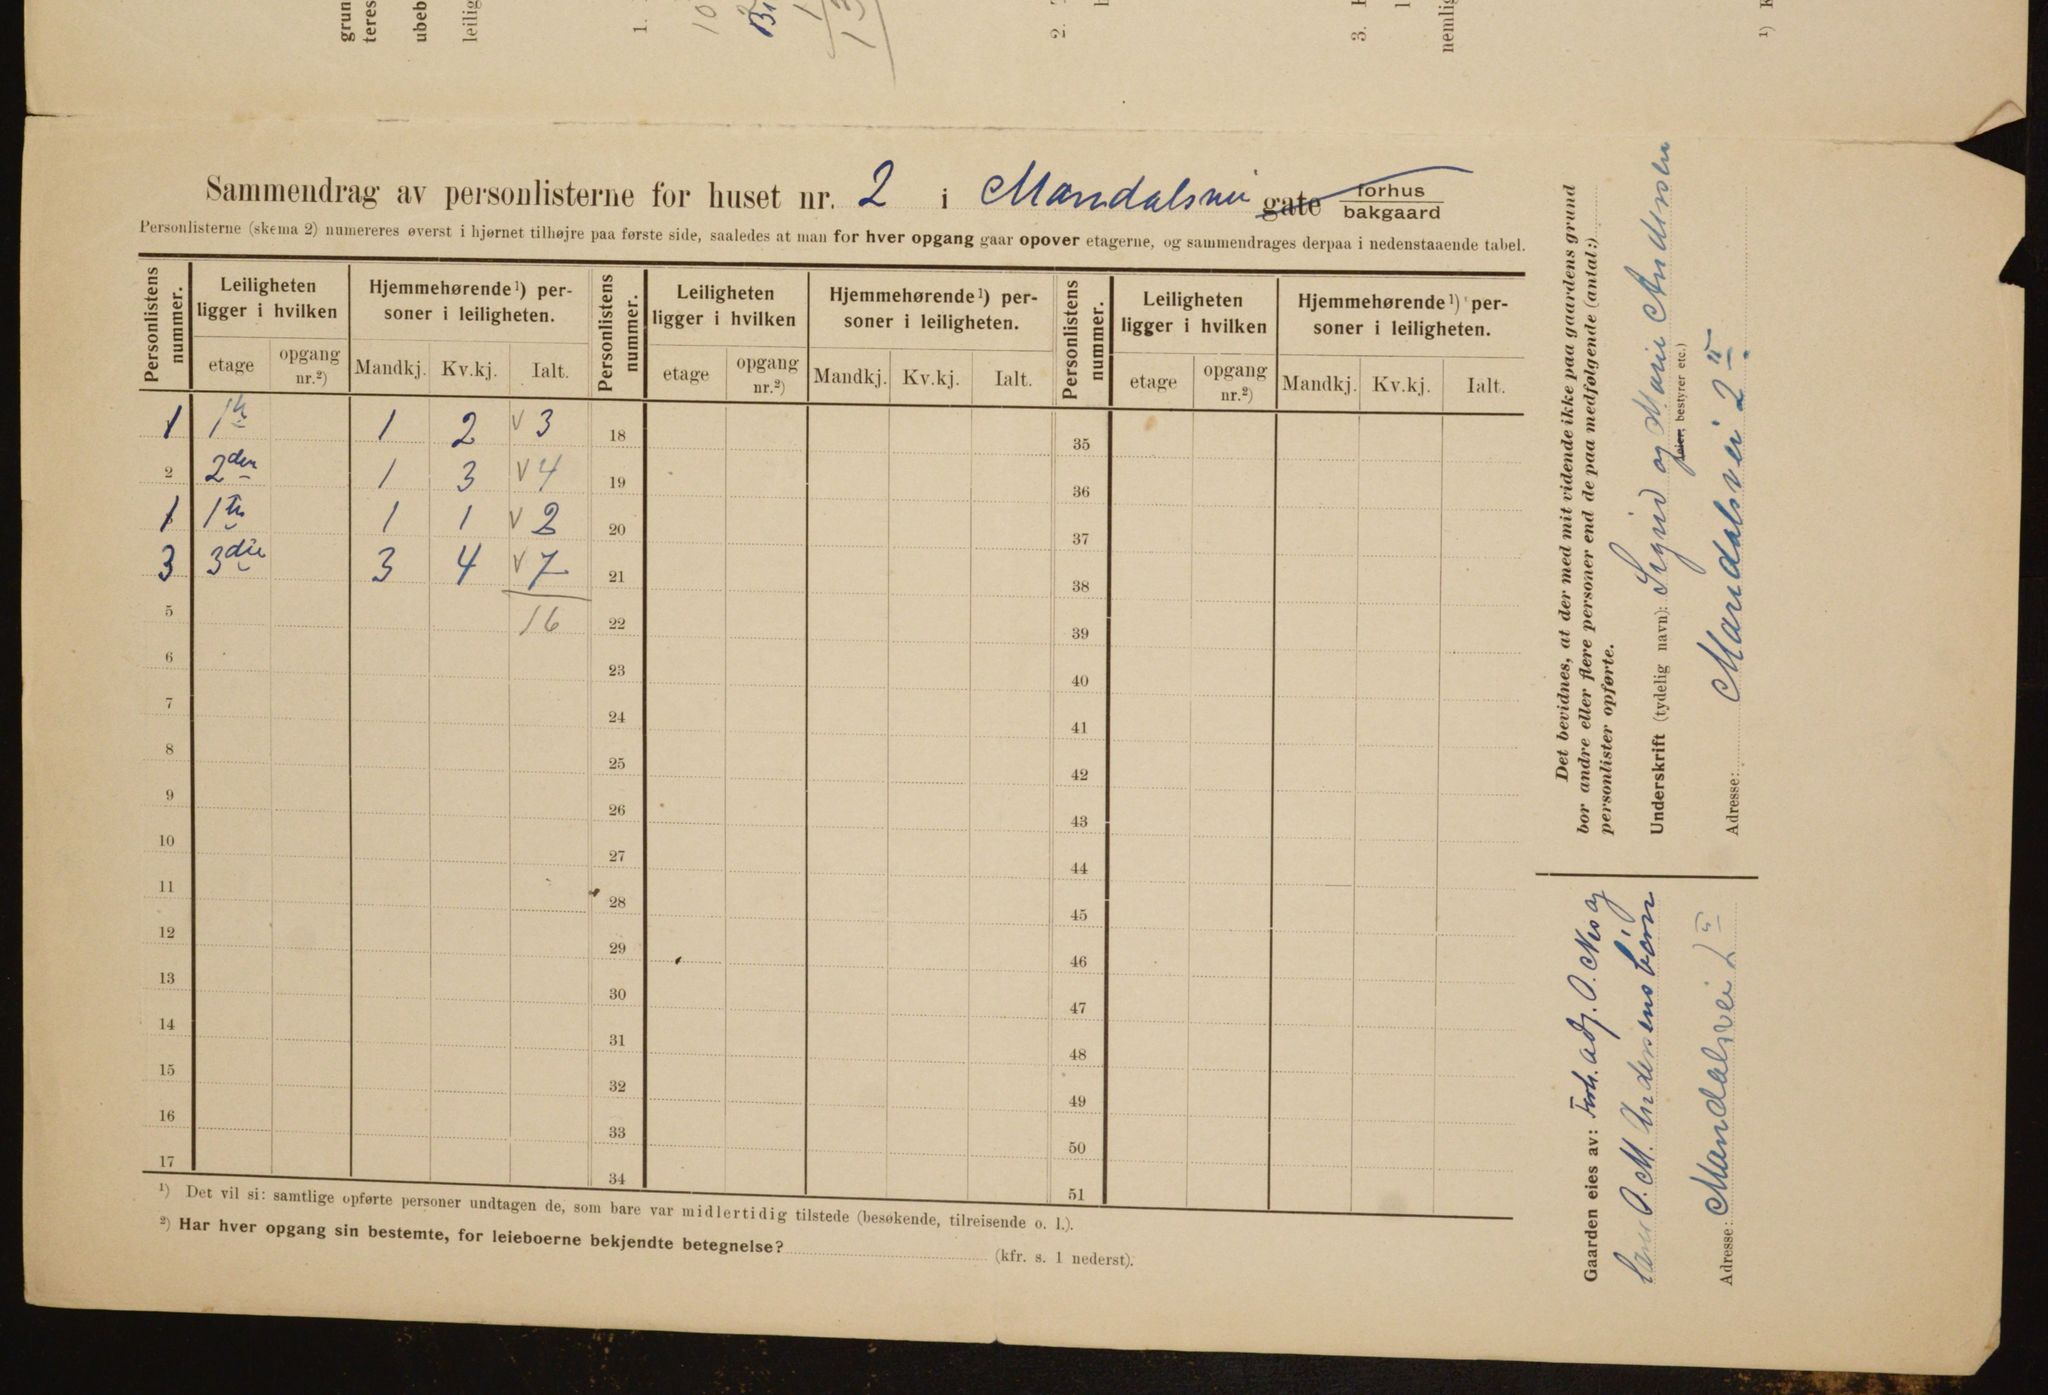 grun
teres
ubeb
leilig
1.
10
2.
3.
nemlig
1) K
Sammendrag av personlisterne for huset nr. 2 i Mandalsvei gate forhus
bakgaard
Personlisterne (skema 2) numereres øverst i hjørnet tilhøjre paa første side, saaledes at man for hver opgang gaar opover etagerne, og sammendrages derpaa i nedenstaaende tabel.
Personlistens nummer. Leiligheten ligger i hvilken Hjemmehørende 1) personer i leiligheten. Personlistens nummer. Leiligheten ligger i hvilken Hjemmehørende 1) personer i leiligheten. Personlistens nummer. Leiligheten ligger i hvilken Hjemmehørende 1) personer i leiligheten.
etage opgang nr.2) Mandkj. Kv.kj. Ialt. etage opgang nr.2) Mandkj. Kv.kj. Ialt. etage opgang nr.2) Mandkj. Kv.kj. Ialt.
1 1te 1 2 v 3 18 35
2 2den 1 3 v 4 19 36
1 1te 1 1 v 2 20 37
3 3die 3 4 v 7 21 38
5 16 22 39
6 23 40
7 24 41
8 25 42
9 26 43
10 27 44
11 28 45
12 29 46
13 30 47
14 31 48
15 32 49
16 33 50
17 34 51
1) Det vil si: samtlige opførte personer undtagen de, som bare var midlertidig tilstede (besøkende, tilreisende o. l.).
2) Har hver opgang sin bestemte, for leieboerne bekjendte betegnelse? (kfr. s. 1 nederst).
Det bevidnes, at der med mit vidende ikke paa gaardens grund
bor andre eller flere personer end de paa medfølgende (antal:)
personlister opførte.
Underskrift (tydelig navn): Sigrid og Marie Andersen
(eier, bestyrer etc.)
Adresse: Mandalsvei 2 II
Gaarden eies av: Forh. adj. O. Nes og
O. M. Andersens børn
Adresse: Mandalsvei 2 II